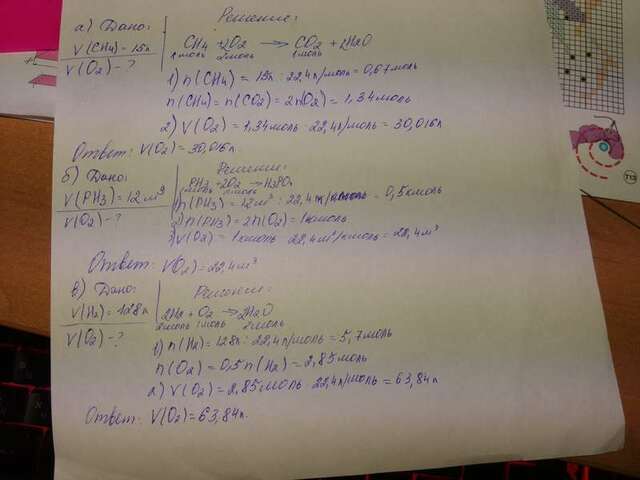 а) Дано:
Решение:
V(CH₄)=15л
V(O₂)-?
CH₄ + 2O₂ → CO₂ + 2H₂O
1моль 2моль 1моль
1) n(CH₄) = 15л : 22,4л/моль = 0,67моль
n(CH₄) = n(CO₂) = 2n(O₂) = 1,34моль
2) V(O₂) = 1,34моль · 22,4л/моль = 30,016л
Ответ: V(O₂) = 30,016л.
б) Дано:
Решение:
V(PH₃) = 12м³
V(O₂)-?
PH₃ + 2O₂ → H₃PO₄
1моль 2моль
1) n(PH₃) = 12м³ : 22,4м³/кмоль = 0,5кмоль
2) n(PH₃) = 2n(O₂) = 1кмоль
3) V(O₂) = 1кмоль · 22,4м³/кмоль = 22,4м³
Ответ: V(O₂) = 22,4м³
в) Дано:
Решение:
V(H₂) = 128л
V(O₂)-?
2H₂ + O₂ → 2H₂O
2моль 1моль 2моль
1) n(H₂) = 128л : 22,4л/моль = 5,7моль
n(O₂) = 0,5n(H₂) = 2,85моль
2) V(O₂) = 2,85моль · 22,4л/моль = 63,84л
Ответ: V(O₂) = 63,84л.